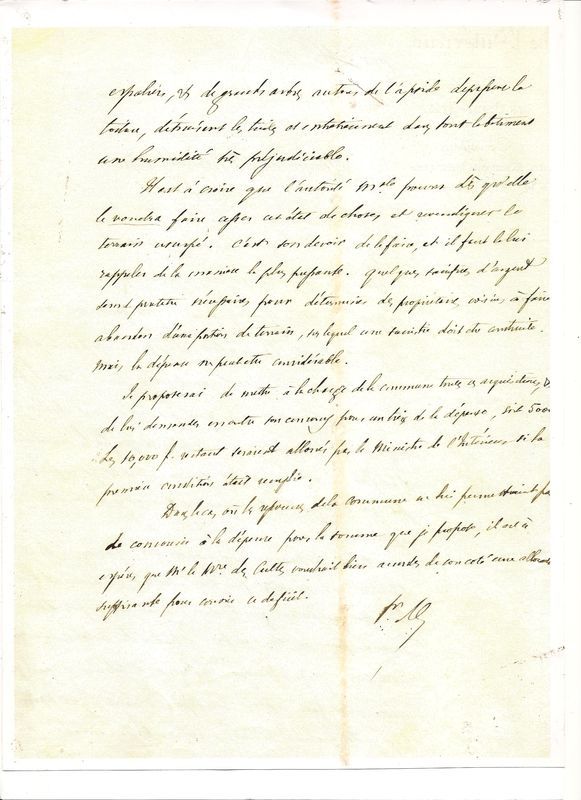 espaliers, & de grands arbres autour de l'abside dégradent la
toiture, détruisent les tuiles et entretiennent dans tout le bâtiment
une humidité très préjudiciable.
Il est à croire que l'autorité m.ale pourra dès qu'elle
le voudra faire cesser cet état de choses et revendiquer le
terrain usurpé. C'est son devoir de le faire, et il faut le lui
rappeler de la manière la plus pressante. quelques sacrifices d'argent
seront peutetre nécessaires pour déterminer des propriétaires voisins à faire
abandon d'une portion de terrain, sur lequel une sacristie doit etre construite.
mais la dépense ne peut etre considérable.
Je proposerai de mettre à la charge de la commune toutes ces acquisitions, &
de lui demander en outre son concours pour un tiers de la dépense, soit 5000
Les 10,000 f. restant seraient alloués par le Ministre de l'Intérieur si la
première condition était remplie.
Dans le cas où les ressources de la commune ne lui permettraient pas
de concourir à la dépense pour la somme que je propose, il est à
espérer que Mr le Mre des Cultes voudrait bien accorder de son coté une allocation
suffisante pour couvrir ce déficit.
Pr. M